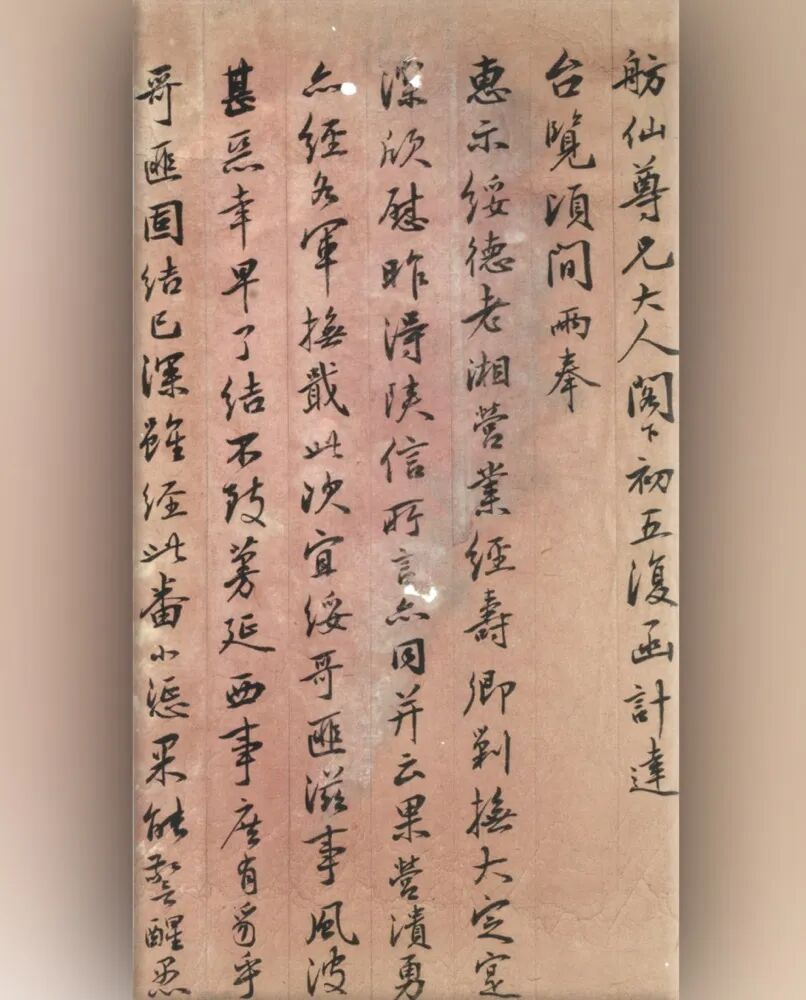 舫仙尊兄大人閣下初五復函計達
台覽頃間兩奉
惠示綏德老湘營業經壽卿剿撫大定寔
深欣慰昨得陕信所言亦同并云果營潰勇
亦經各軍撫戢此次宜綏哥匪滋事風波
甚惡幸早了結不致蔓延西事庶有豸乎
哥匪固結已深雖經此番小懲果能警醒愚